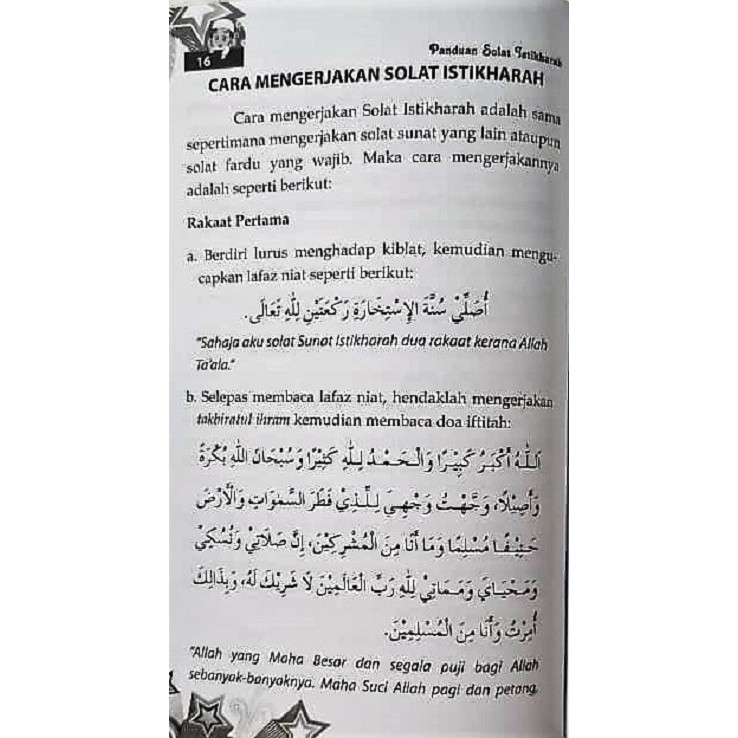 16
Panduan Solat Istikharah
CARA MENGERJAKAN SOLAT ISTIKHARAH
Cara mengerjakan Solat Istikharah adalah sama
sepertimana mengerjakan solat sunat yang lain ataupun
solat fardu yang wajib. Maka cara mengerjakannya
adalah seperti berikut:
Rakaat Pertama
a. Berdiri lurus menghadap kiblat, kemudian mengu-
capkan lafaz niat seperti berikut:
أُصَلِّيْ سُنَّةَ الإِسْتِخَارَةِ رَكْعَتَيْنِ لِلّٰهِ تَعَالَى.
"Sahaja aku solat Sunat Istikharah dua rakaat kerana Allah
Ta'ala."
b. Selepas membaca lafaz niat, hendaklah mengerjakan
takbiratul ihram kemudian membaca doa iftitah:
اَللّٰهُ أَكْبَرُ كَبِيْرًا وَالْحَمْدُ لِلّٰهِ كَثِيْرًا وَسُبْحَانَ اللّٰهِ بُكْرَةً
وَأَصِيْلًا، وَجَّهْتُ وَجْهِيَ لِلَّذِيْ فَطَرَ السَّمٰوَاتِ وَالْأَرْضَ
حَنِيْفًا مُسْلِمًا وَمَا أَنَا مِنَ الْمُشْرِكِيْنَ، إِنَّ صَلَاتِيْ وَنُسُكِيْ
وَمَحْيَايَ وَمَمَاتِيْ لِلّٰهِ رَبِّ الْعَالَمِيْنَ لَا شَرِيْكَ لَهُ، وَبِذَالِكَ
أُمِرْتُ وَأَنَا مِنَ الْمُسْلِمِيْنَ.
"Allah yang Maha Besar dan segala puji bagi Allah
sebanyak-banyaknya. Maha Suci Allah pagi dan petang,